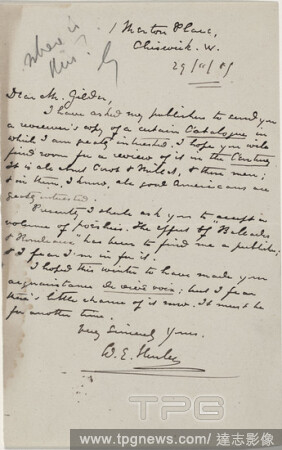 where is
this?
1 Merton Place,
Chiswick. W.
29/11/89
Dear Mr. Gilder,
I have asked my publisher to send you
a reviewer's copy of a certain Catalogue in
which I am greatly interested. I hope you will
find room for a review of it in the Century.
It is about Corot & Millet, & these men;
& in them, I know, all good Americans are
greatly interested.
Presently I shall ask you to accept a
volume of poesies. The effect of "Ballades
& Rondeaus" has been to find me a publisher;
& I fear I'm in for it.
I hoped this winter to have made your
acquaintance de vive voix; but I fear
there's little chance of it now. It must be
for another time.
Very Sincerely Yours,
W. E. Henley
TPG
www.tpgnews.com/達志影像